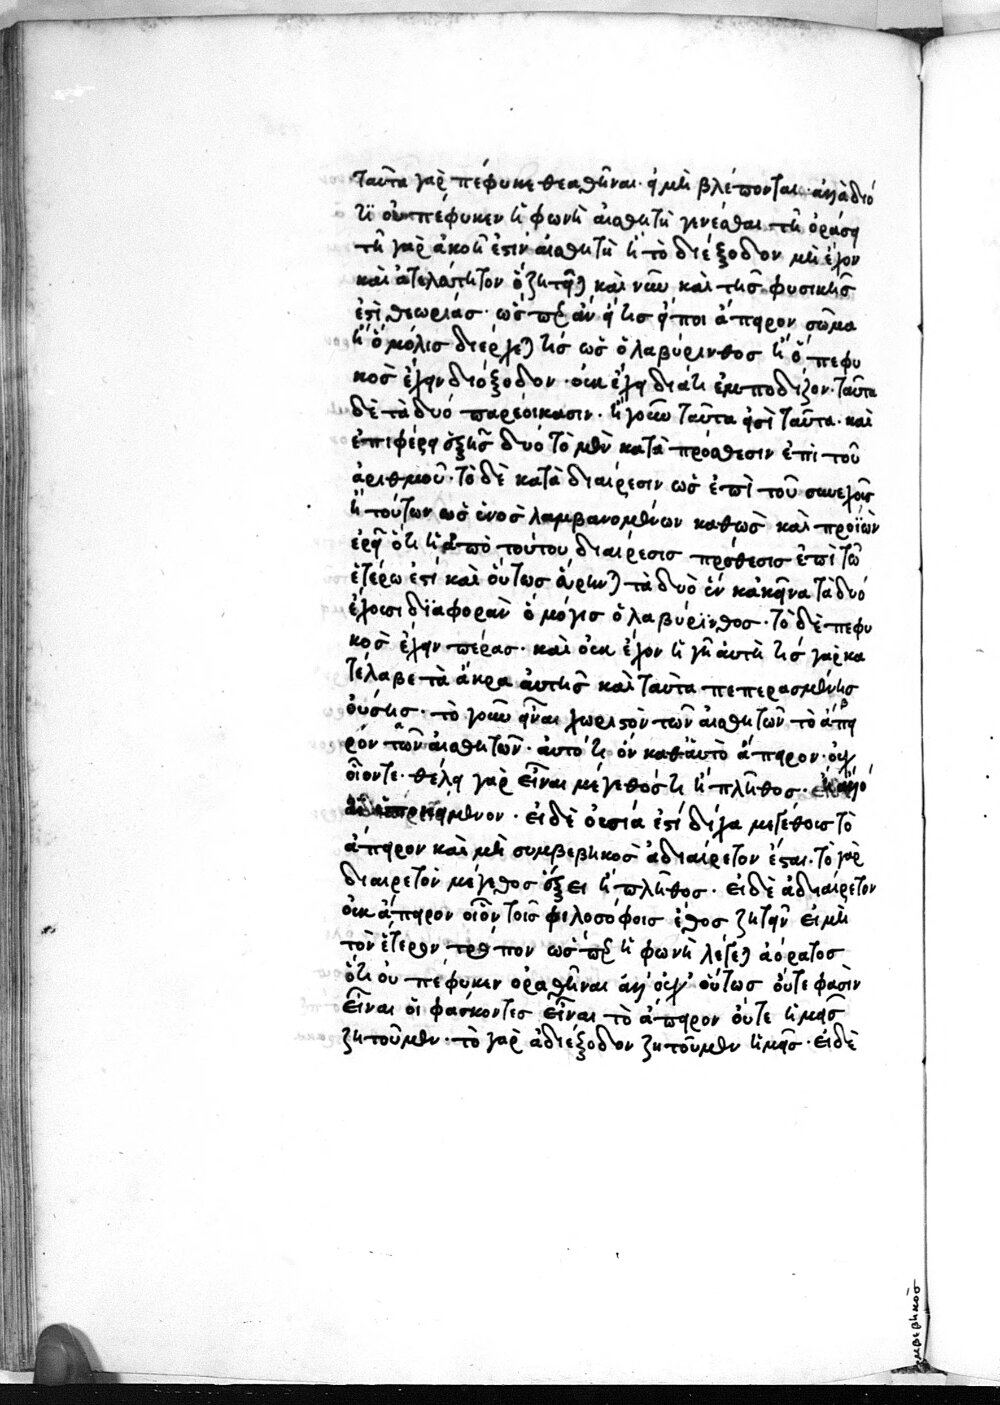 ταῦτα γὰρ πέφυκε θεαθῆναι· εἰ μὴ βλέπονται· ἀλλὰ διό
τι οὐ πέφυκεν ἡ φωνὴ αἰσθητὴ γενέσθαι τῇ ὁράσει
τῇ γὰρ ἀκοῇ ἐστιν αἰσθητὴ ἢ τὸ διέξοδον μὴ ἔχον
καὶ ἀτελεύτητον ὃ ζητεῖται καὶ νῦν καὶ τῆς φυσικῆς
ἐστὶ θεωρίας· ὡσπερ ἂν εἴ τις εἴποι ἄπειρον σῶμα
ἢ ὃ μόλις διέρχεται τις ὡς ὁ λαβύρινθος ἢ ὃ πεφυ
κὸς ἔχειν διέξοδον· οὐκ ἔχει διά τι ἐμποδίζον· ταῦτα
δὲ τὰ δυό παρεόικασιν· ἢ γοῦν ταῦτα εἰσὶ ταῦτα· καὶ
ἐπιφέρει ἑξῆς δυό τὸ μὲν κατὰ πρόσθεσιν ἐπὶ τοῦ
ἀριθμοῦ· τὸ δὲ κατὰ διαίρεσιν ὡς ἐπὶ τοῦ συνεχοῦς
ἢ τούτων ὡς ἑνὸς λαμβανομένων καθὼς καὶ προϊὼν
ἐρεῖ ὅτι ἡ ἀπὸ τούτου διαίρεσις πρόσθεσις ἐπὶ τῶ
ἑτέρω ἐστί καὶ οὕτως τὰ δυὸ ἓν κἀκεῖνα τὰ δυό
ἔχουσι διαφορὰν ὁ μόγις ὁ λαβύρϊνθος· τὸ δὲ πεφυ
κὸς ἔχειν πέρας· καὶ οὐκ ἔχον ἡ γῆ αὐτὴ τίς γὰρ κα
τέλαβε τὰ ἄκρα αὐτῆς καὶ ταῦτα πεπερασμένης
οὔσης· τὸ γοῦν εἶναι χωριστὸν τῶν αἰσθητῶν τὸ ἄπει
ρόν τῶν αἰσθητῶν· αὐτό τι ὂν καθ' αὑτὸ ἄπειρον· οὐχ
οἷόντε· θέλει γὰρ εἶναι μέγεθός τι ἢ πλῆθος·
εἰ δὲ οὐσία ἐστί δίχα μεγέθους τὸ
ἄπειρον καὶ μὴ συμβεβηκὸς ἀδιαίρετον ἔσται· τὸ γὰρ
διαιρετὸν μέγεθος ἕξει ἢ πλῆθος· εἰ δὲ ἀδιαίρετον
οὐκ ἄπειρον οἷον τοῖς φιλοσόφοις ἔθος ζητεῖν εἰ μὴ
τὸν ἕτερον τρόπον ὡσπερ ἡ φωνὴ λέγεται ἀόρατος
ὅτι οὐ πέφυκεν ὁραθῆναι ἀλλ' οὐχ' οὕτως οὔτε φασὶν
εἶναι οἱ φάσκοντες εἶναι τὸ ἄπειρον οὔτε ἡμεῖς
ζητοῦμεν· τὸ γὰρ ἀδιέξοδον ζητοῦμεν ἡμεῖς· εἰ δὲ